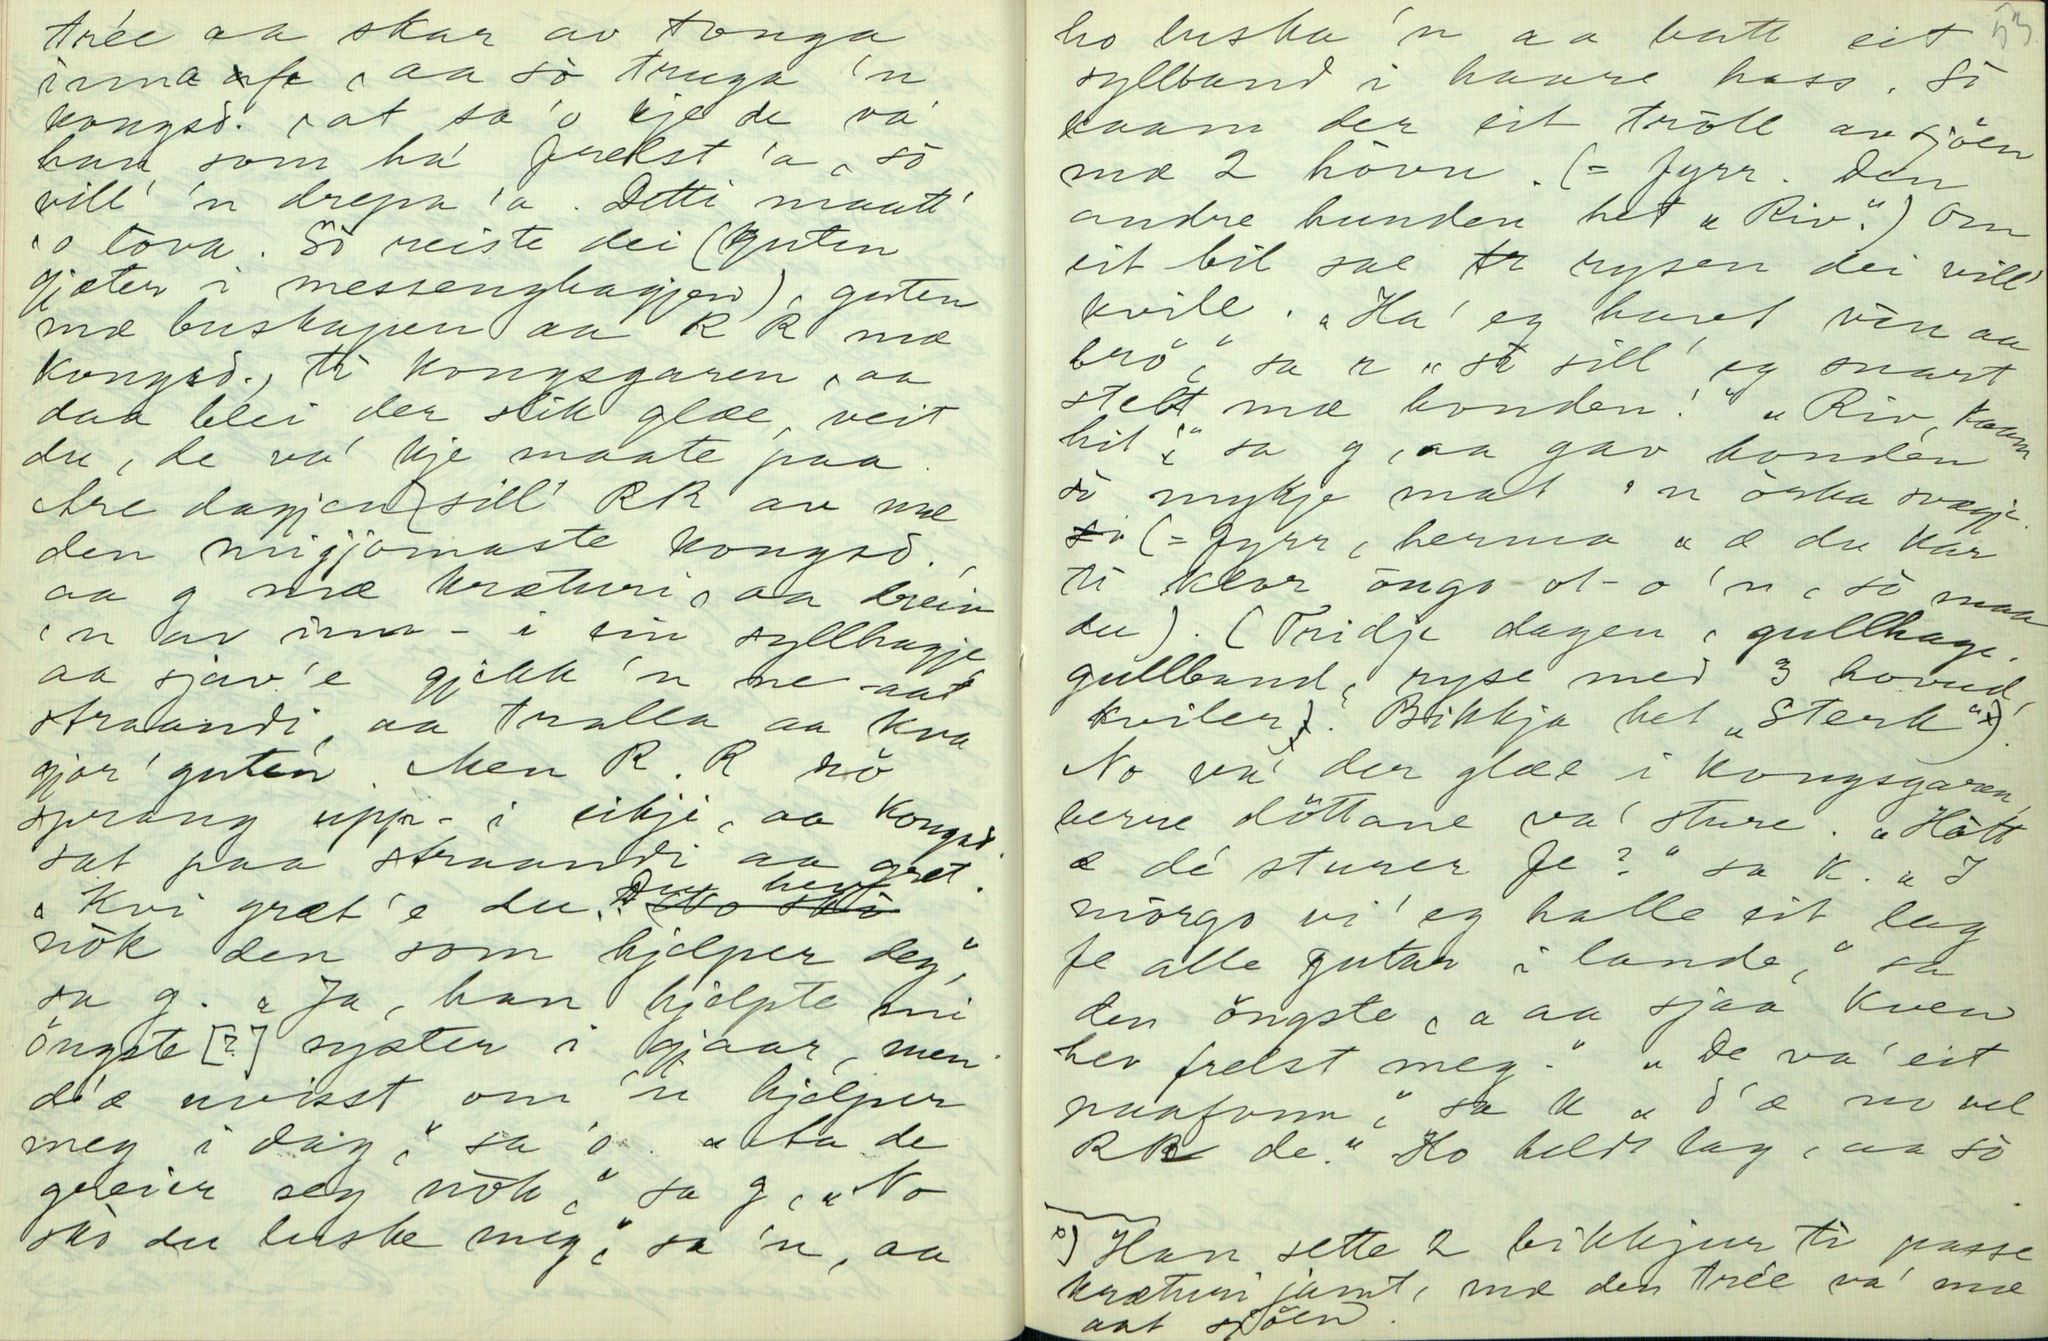 trée aa skar av tonga
inna fe, aa sò truga 'n
kongsd., at sa 'o kje de va'
han som ha' frelst 'a, sò
vill' 'n drepa 'a. Detti maatt'
'o lova. Sò reiste dei (guten
gjæter i messenghagjen), guten
mæ buskapen aa R R mæ
kongsd., ti kongsgaren, aa
daa blei der slik glæe, veit
du, de va' kje maate paa.
Are dagjen sill' R R av mæ
den migjomaste kongsd.,
aa g mæ kræturi, aa dreiv
'n av inn - i ein syllhagje,
aa sjav 'e gjekk 'n ne aat
straandi, aa tralla aa kva
gjor' guten. Men R. R nò
sprang upp - i eikji, aa kongsd.
sat paa straandi aa gret.
„Kvi græt 'e du? Du hev
nòk den som hjelper deg,"
sa g. „Ja, han hjelpte mi
öngste [?] syster i gjaar, men
d'æ uvisst om 'n hjelper
meg i dag," sa 'o. „Aa de
greier seg nòk," sa g, „No
skò du luske meg," sa 'n, aa
53
ho luska 'n aa batt eit
syllband i haare hass. Sò
kaam der eit tròll av sjöen
mæ 2 hövu. (= fyrr. Den
andre hunden het „Riv".) Om
eit bil sae rysen dei vill'
kvile. „Ha' eg havt vin aa
brö," sa n „sò sill' eg snart
stelt mæ honden!" „Riv, kaam
hit," sa g, aa gav honden
sò mykje mat 'n örka svægje.
(= fyrr, herma „æ du kar
ti klor öngo ot - o 'n, sò maa
du). (Tridje dagen, gullhage,
gullband, ryse med 3 hovud,
kviler. Bikkja het „Sterk" x).
No va' der glæe i kongsgaren,
berre döttane va' sture. „Hött
æ dé sturer fe?" sa K. „I
mörgo vi' eg halle eit lag
fe alle gutar i lande," sa
den öngste, „aa sjaa kven
hev frelst meg." „De va' eit
paafunn," sa K „d'æ no vel
RR de." Ho heldt lag, aa sò
x) Han sette 2 bikkjur ti passe
kræturi jamt, mæ den trée va' mæ
aat sjöen.